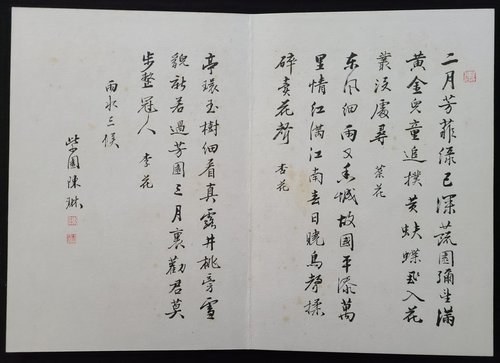 二月芳菲綠已深蔬圃彌望滿
黃金兒童追撲黃蛺蝶飛入花
叢沒處尋 菜花
东风細雨又春城故國平添萬
里情紅滿江南春日曉鳥聲揉
碎賣花聲 杏花
亭環玉樹細看真露井桃旁雪
貌新若過芳園三月裏勸君莫
步整冠人 李花
雨水三候
園陳琳